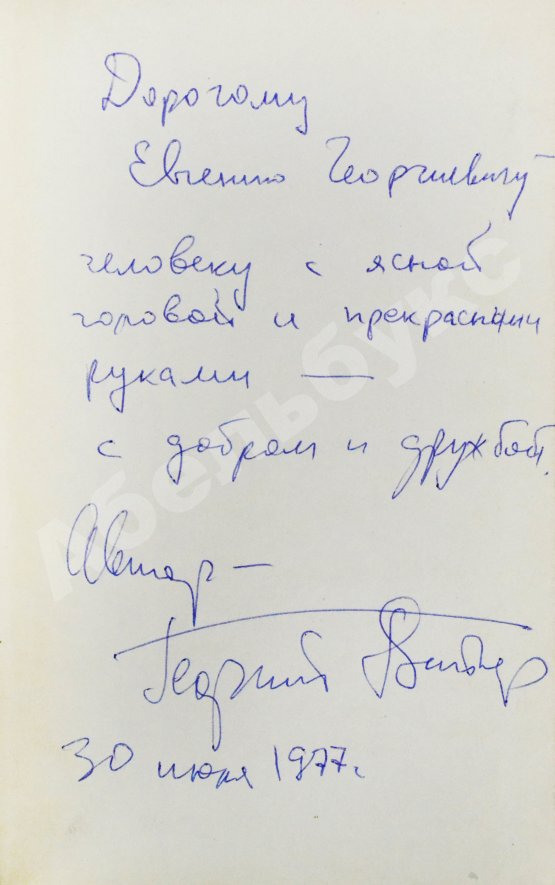 Дорогому
Евгению Георгиевичу
человеку с ясной
головой и прекрасными
руками —
с добром и дружбой.
Автор —
Георгий
30 июня 1977 г.
Абельбукс